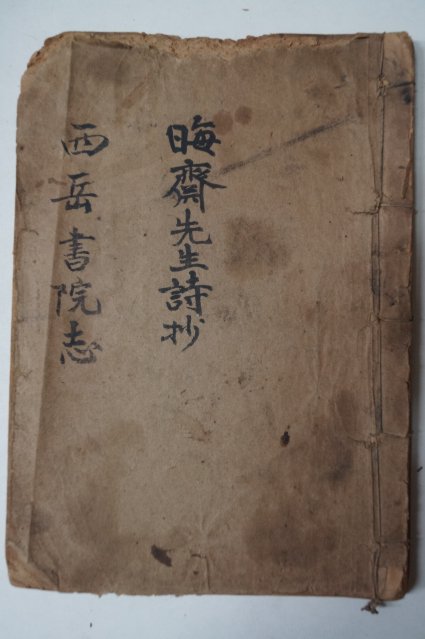 晦齋先生詩抄
西岳書院志